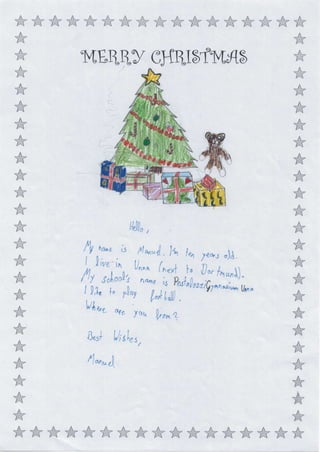 MERRY CHRISTMAS
Hello,
My name is Manuel. I'm ten years old.
I live in Unna (next to Dortmund).
My school's name is Pestalozzi Gymnasium Unna
I like to play football.
Where are you from?
Best Wishes,
Manuel